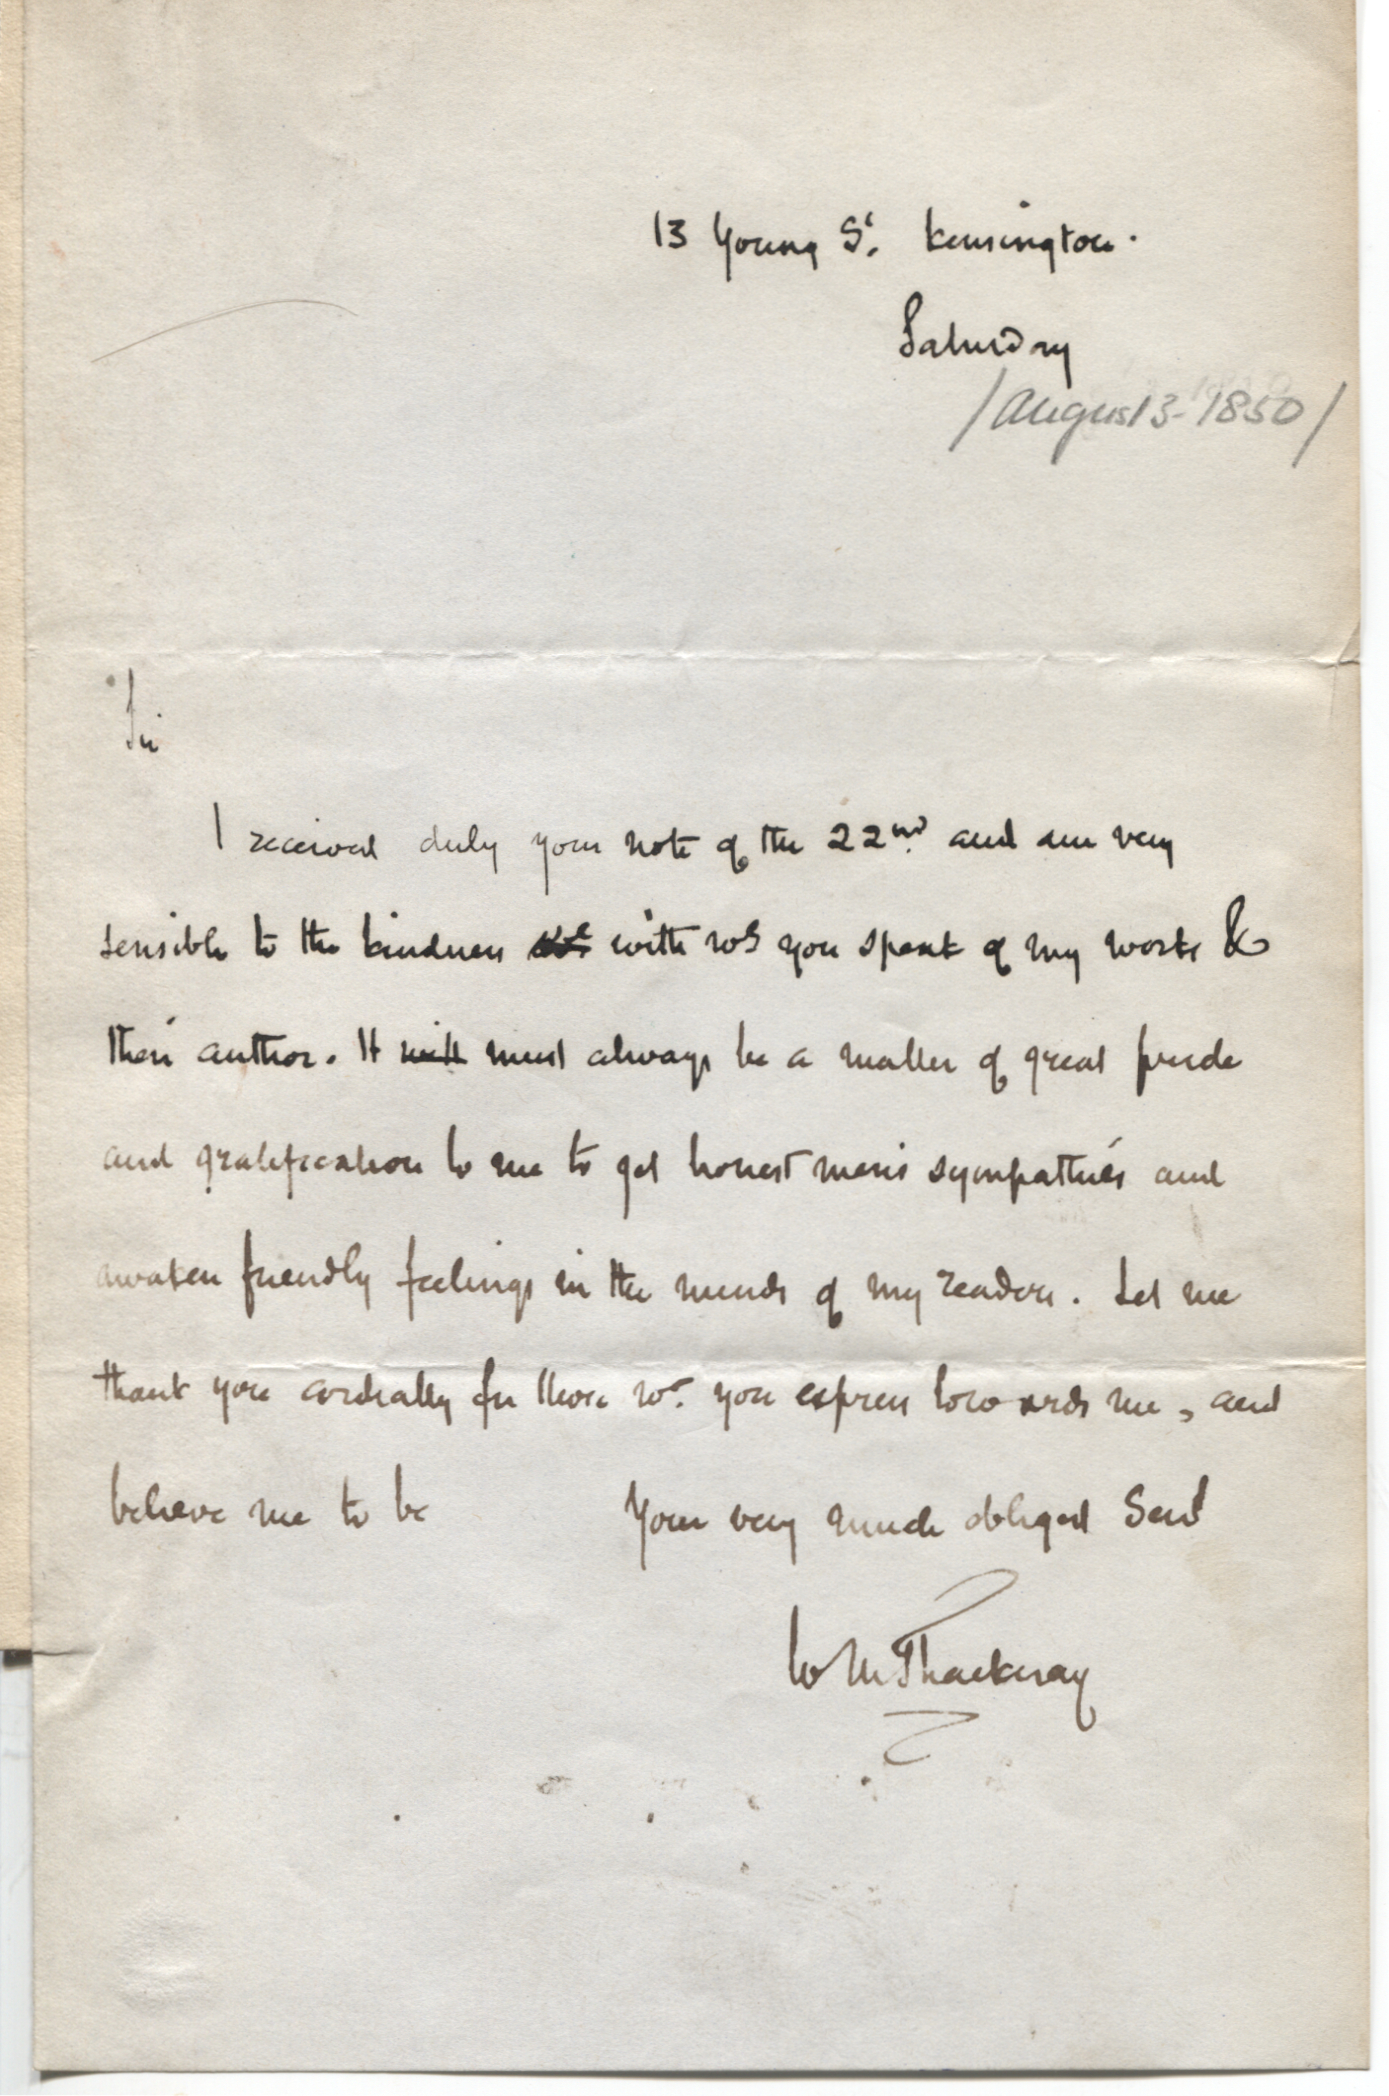 13 Young St. Kensington.
Saturday
/August 3-1850/
Sir
I received duly your note of the 22nd. and am very
sensible to the kindness with wh you speak of my works &
their author. It will must always be a matter of great pride
and gratification to me to get honest men's sympathies and
awaken friendly feelings in the minds of my readers. Let me
thank you cordially for those wh. you express towards me, and
believe me to be Your very much obliged Servt
W M Thackeray